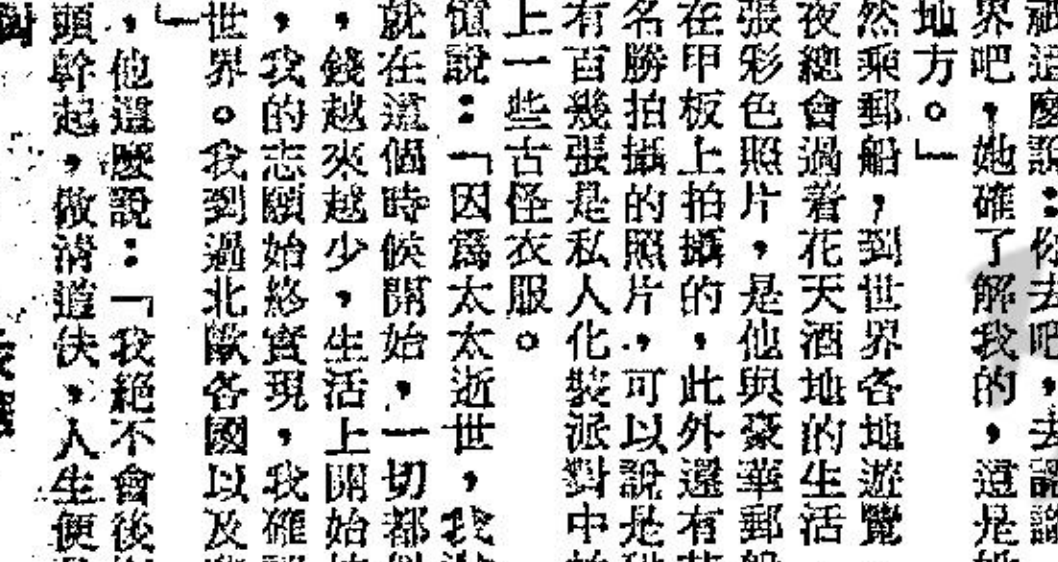 這麼說：你去吧，去
界吧，她確了解我的，這是
地方。」
然乘郵船，到世界各地遊覽
夜總會過着花天酒地的生活
張彩色照片，是他與豪華郵
在甲板上拍攝的，此外還有
名勝拍攝的照片，可以說是
有百幾張是私人化裝派對中
上一些古怪衣服。
憶說：「因爲太太逝世，我
就在這個時候開始，一切都
，錢越來越少，生活上開始
，我的志願始終實現，我確
世界。我到過北歐各國以及
」
，他這麼說：「我絕不會後
頭幹起，做清道伕，人生便